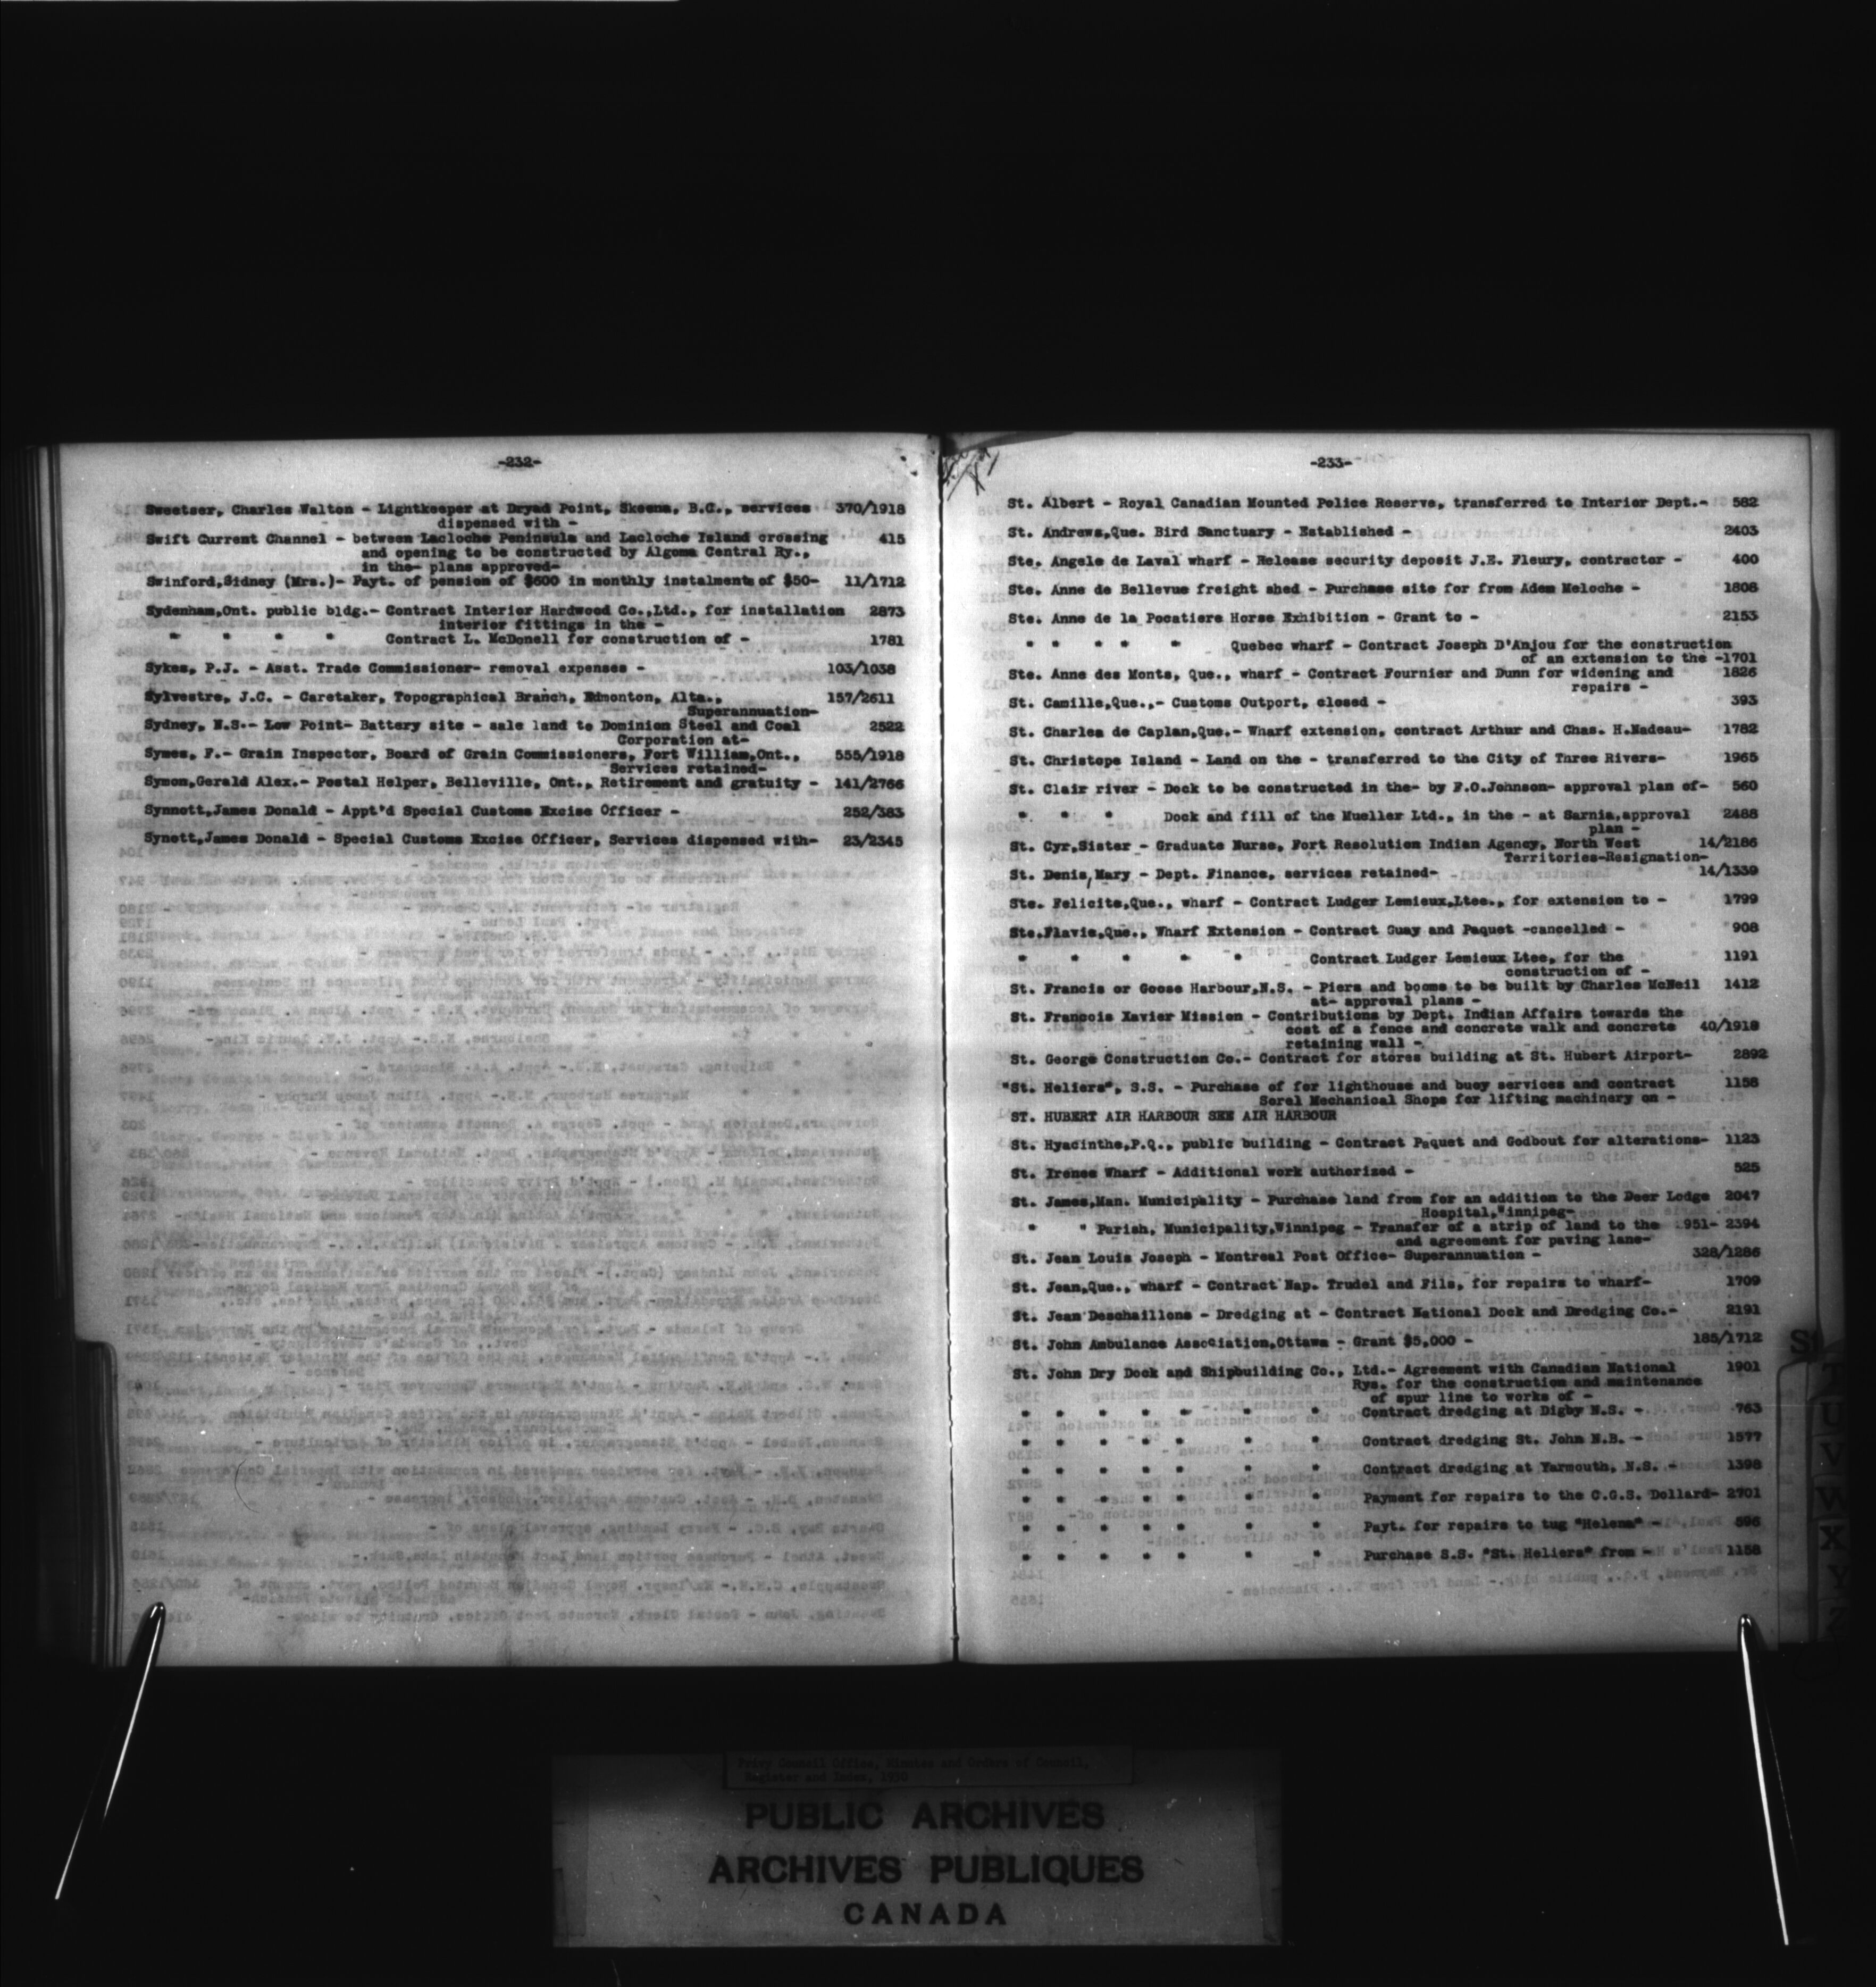 -232-
Sweetser, Charles Walton - Lightkeeper at Dryad Point, Skeena, B.C., services 370/1918
dispensed with -
Swift Current Channel - between Lacloche Peninsula and Lacloche Island crossing 415
and opening to be constructed by Algoma Central Ry.,
in the- plans approved-
Swinford,Sidney (Mrs.)- Payt. of pension of $600 in monthly instalments of $50- 11/1712
Sydenham,Ont. public bldg.- Contract Interior Hardwood Co.,Ltd., for installation 2873
interior fittings in the -
" " " " Contract L. McDonell for construction of - 1781
Sykes, P.J. - Asst. Trade Commissioner- removal expenses - 103/1038
Sylvestre, J.C. - Caretaker, Topographical Branch, Edmonton, Alta., 157/2611
Superannuation-
Sydney, N.S.- Low Point- Battery site - sale land to Dominion Steel and Coal 2522
Corporation at-
Symes, F.- Grain Inspector, Board of Grain Commissioners, Fort William,Ont., 555/1918
Services retained-
Symon,Gerald Alex.- Postal Helper, Belleville, Ont., Retirement and gratuity - 141/2766
Synnott,James Donald - Appt'd Special Customs Excise Officer - 252/383
Synott,James Donald - Special Customs Excise Officer, Services dispensed with- 23/2345
-233-
St. Albert - Royal Canadian Mounted Police Reserve, transferred to Interior Dept.- 582
St. Andrews,Que. Bird Sanctuary - Established - 2403
Ste. Angele de Laval wharf - Release security deposit J.E. Fleury, contractor - 400
Ste. Anne de Bellevue freight shed - Purchase site for from Adem Meloche - 1808
Ste. Anne de la Pocatiere Horse Exhibition - Grant to - 2153
" " " " " Quebec wharf - Contract Joseph D'Anjou for the construction
of an extension to the -1701
Ste. Anne des Monts, Que., wharf - Contract Fournier and Dunn for widening and 1826
repairs -
St. Camille,Que.,- Customs Outport, closed - 393
St. Charles de Caplan,Que.- Wharf extension, contract Arthur and Chas. H.Nadeau- 1782
St. Christope Island - Land on the - transferred to the City of Three Rivers- 1965
St. Clair river - Dock to be constructed in the- by F.O.Johnson- approval plan of- 560
" " " Dock and fill of the Mueller Ltd., in the - at Sarnia,approval 2488
plan -
St. Cyr,Sister - Graduate Nurse, Fort Resolution Indian Agency, North West 14/2186
Territories-Resignation-
St. Denis,Mary - Dept. Finance, services retained- 14/1339
Ste. Felicite,Que., wharf - Contract Ludger Lemieux,Ltee., for extension to - 1799
Ste.Flavie,Que., Wharf Extension - Contract Guay and Paquet -cancelled - 908
" " " " " Contract Ludger Lemieux Ltee, for the 1191
construction of -
St. Francis or Goose Harbour,N.S. - Piers and booms to be built by Charles McNeil 1412
at- approval plans -
St. Francois Xavier Mission - Contributions by Dept. Indian Affairs towards the
cost of a fence and concrete walk and concrete 40/1918
retaining wall -
St. George Construction Co.- Contract for stores building at St. Hubert Airport- 2892
"St. Heliers", S.S. - Purchase of for lighthouse and buoy services and contract 1158
Sorel Mechanical Shops for lifting machinery on -
ST. HUBERT AIR HARBOUR SEE AIR HARBOUR
St. Hyacinthe,P.Q., public building - Contract Paquet and Godbout for alterations- 1123
St. Irenee Wharf - Additional work authorized - 525
St. James,Man. Municipality - Purchase land from for an addition to the Deer Lodge 2047
Hospital,Winnipeg-
" " Parish, Municipality,Winnipeg - Transfer of a strip of land to the 951- 2394
and agreement for paving lane-
St. Jean Louis Joseph - Montreal Post Office- Superannuation - 328/1286
St. Jean,Que., wharf - Contract Nap. Trudel and Fils, for repairs to wharf- 1709
St. Jean Deschaillons - Dredging at - Contract National Dock and Dredging Co.- 2191
St. John Ambulance Association,Ottawa - Grant $5,000 - 185/1712
St. John Dry Dock and Shipbuilding Co., Ltd.- Agreement with Canadian National 1901
Rys. for the construction and maintenance
of spur line to works of -
" " " " " " Contract dredging at Digby N.S. - 763
" " " " " " Contract dredging St. John N.B. - 1577
" " " " " " Contract dredging at Yarmouth, N.S. - 1398
" " " " " " Payment for repairs to the C.G.S. Dollard- 2701
" " " " " " Payt. for repairs to tug "Helena" - 596
" " " " " " Purchase S.S. "St. Heliers" from - 1158
St
T
U
V
W
X
Y
Z
Privy Council Office, Minutes and Orders of Council,
Register and Index, 1930
PUBLIC ARCHIVES
ARCHIVES PUBLIQUES
CANADA